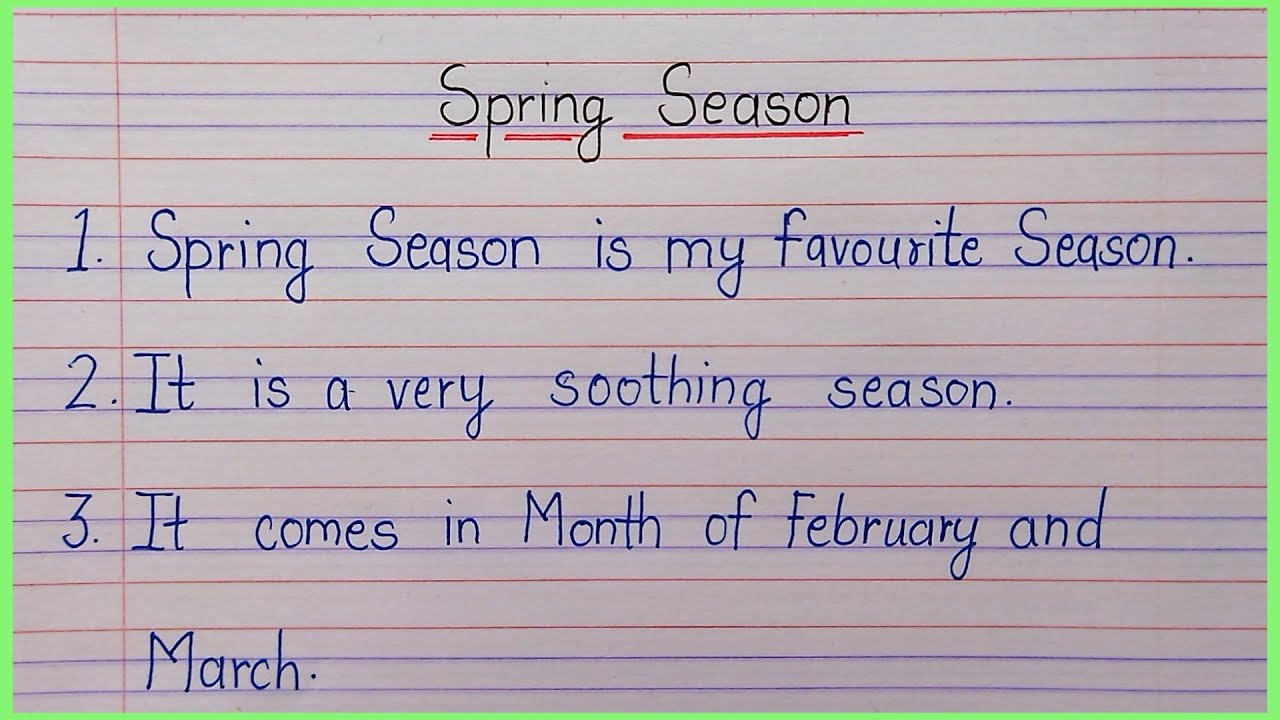 Spring Season
1. Spring Season is my favourite Season.
2. It is a very soothing season.
3. It comes in Month of February and
March.